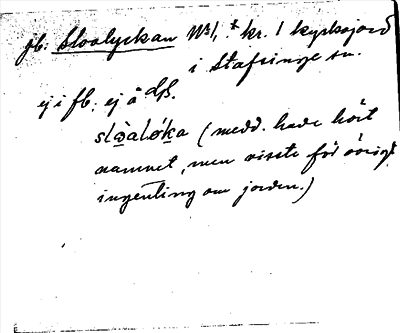 jb. Stoalyckan N:o 1, * kr. 1 kyrkojord
i Stafsinge sn.
ej i fb. ej å ds.
slòaløka (medd. hade hört
namnet, men visste för övrigt
ingenting om jorden.)